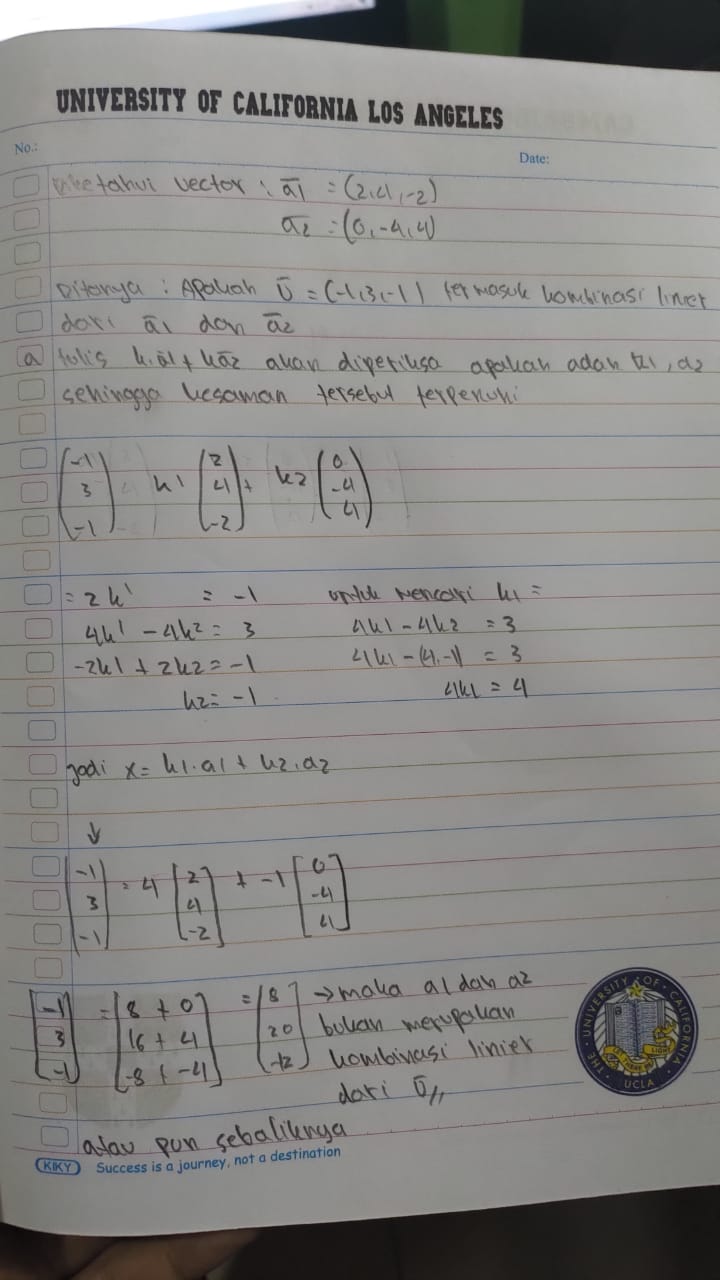 UNIVERSITY OF CALIFORNIA LOS ANGELES
No.:
Date:
Diketahui vector : a̅1 = (2,4,-2)
a̅2 = (0,-4,4)
Ditanya : Apakah ū = (-1,3,-1) termasuk kombinasi linier
dari a̅1 dan a̅2
a tulis k.a̅1 + ka̅2 akan diperiksa apakah adah k1, a2
sehingga kesaman tersebut terpenuhi
(-1 3 -1) k1 (2 4 -2) + k2 (0 -4 4)
= 2k1 = -1
4k1 - 4k2 = 3
-2k1 + 2k2 = -1
k2 = -1
untuk mencari k1 =
4k1 - 4k2 = 3
4k1 - (4.-1) = 3
4k1 = 4
jadi x = k1.a1 + k2.a2
↓
[-1 3 -1] = 4 [2 4 -2] + -1 [0 -4 4]
[-1 3 -1] = [8 + 0 16 + 4 -8 + -4] = [8 20 -12] → maka a1 dan a2
bukan merupakan
kombinasi linier
dari ū//
atau pun sebaliknya
KIKY Success is a journey, not a destination
THE · UNIVERSITY · OF · CALIFORNIA
UCLA